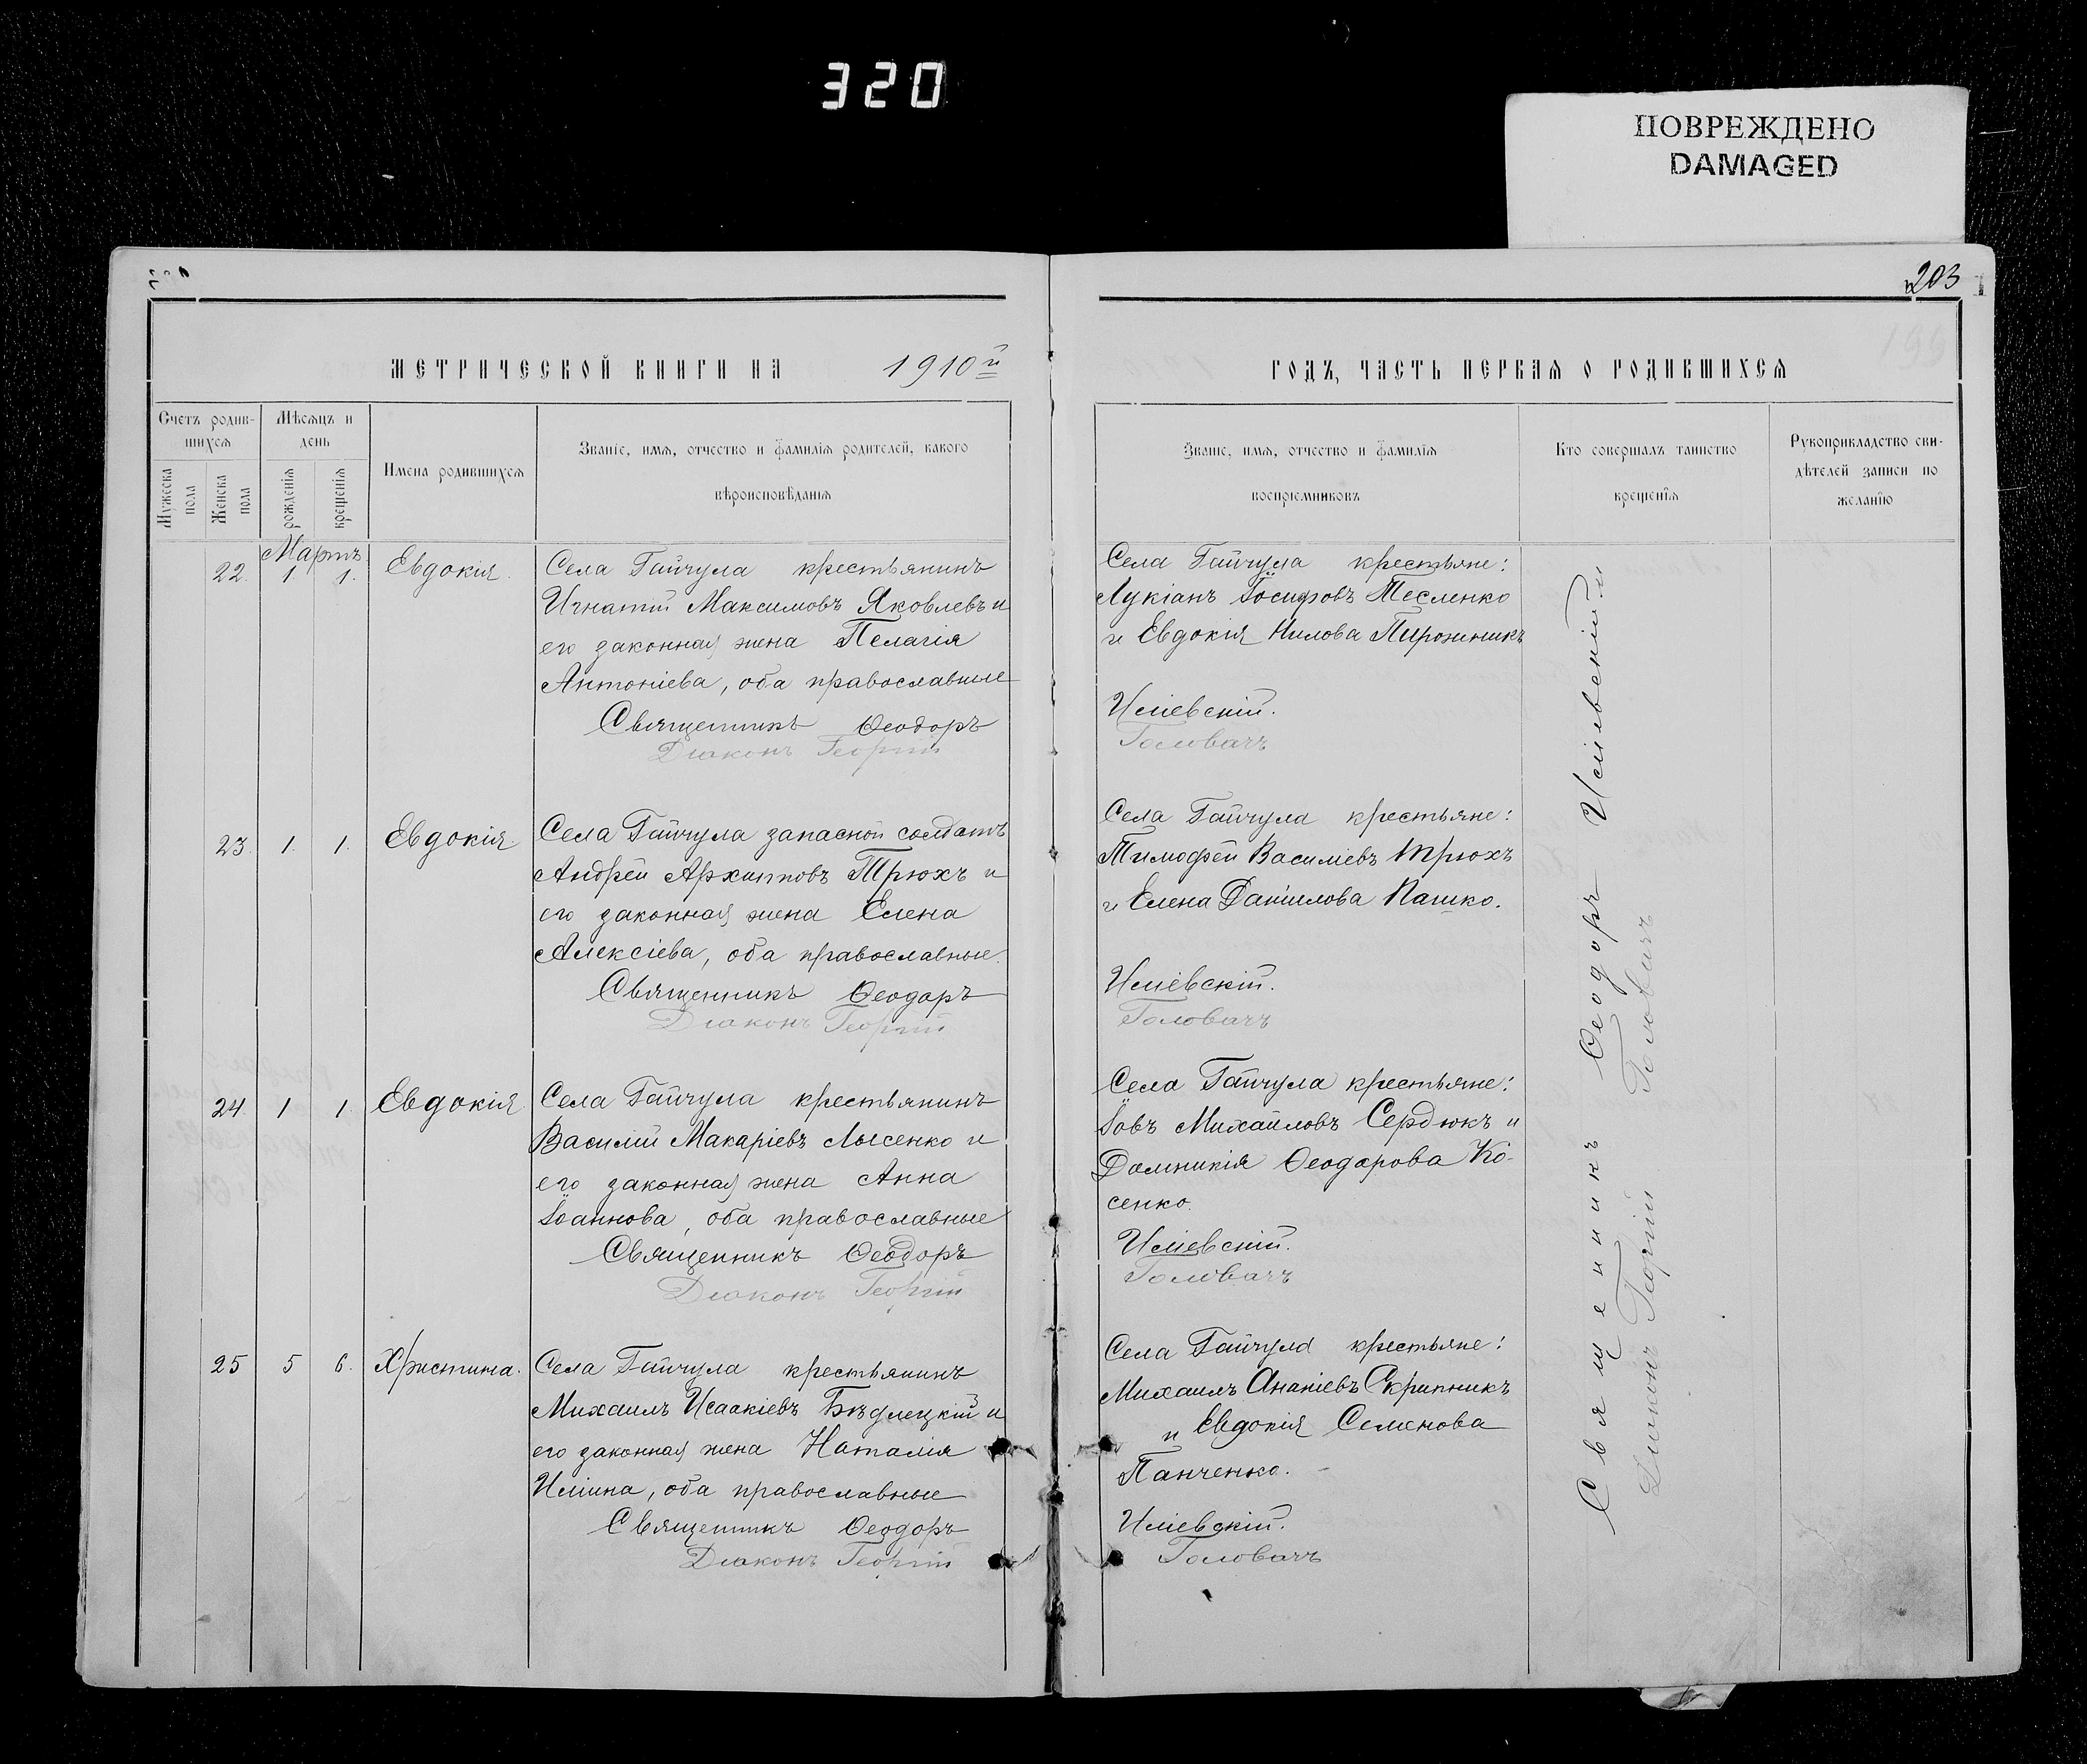 320
ПОВРЕЖДЕНО
DAMAGED
203
МЕТРИЧЕСКОЙ КНИГИ НА 1910й
Счетъ родив-
шихся
Мѣсяцъ и
день
Мужеска
пола
Женска
пола
рожденія
крещенія
Имена родившихся
Званіе, имя, отчество и фамилія родителей, какого
вѣроисповѣданія
Мартъ
22. 1. 1. Евдокія.
Села Гайчула крестьянинъ
Игнатій Максимовъ Яковлевъ и
его законная жена Пелагія
Антоніева, оба православные
Священникъ Ѳеодоръ
Діаконъ Георгій
23. 1. 1. Евдокія.
Села Гайчула запасной солдатъ
Андрей Архипповъ Трюхъ и
его законная жена Елена
Алексіева, оба православные.
Священникъ Ѳеодоръ
Діаконъ Георгій
24. 1 1. Евдокія
Села Гайчула крестьянинъ
Василій Макаріевъ Лысенко и
его законная жена Анна
Іоаннова, оба православные
Священникъ Ѳеодоръ
Діаконъ Георгій
25 5 6. Христина.
Села Гайчула крестьянинъ
Михаилъ Исаакіевъ Бѣдлецкій и
его законная жена Наталія
Иліина, оба православные
Священникъ Ѳеодоръ
Діаконъ Георгій
ГОДЪ, ЧАСТЬ ПЕРВАЯ О РОДИВШИХСЯ
Званіе, имя, отчество и фамилія
воспріемниковъ
Кто совершалъ таинство
крещенія
Рукоприкладство сви-
дѣтелей записи по
желанію
Села Гайчула крестьяне:
Лукіанъ Іосифовъ Тесленко
и Евдокія Нилова Пирожникъ
Иліевскій.
Головачъ
Села Гайчула крестьяне:
Тимофей Василіевъ Трюхъ
и Елена Даніилова Пашко.
Иліевскій.
Головачъ
Села Гайчула крестьяне:
Іовъ Михайловъ Сердюкъ и
Домникія Ѳеодорова Ко-
сенко.
Иліевскій.
Головачъ
Села Гайчула крестьяне:
Михаилъ Ананіевъ Скрипникъ
и Евдокія Семенова
Панченко.
Иліевскій.
Головачъ
Священникъ Ѳеодоръ Иліевскій
Діаконъ Георгій Головачъ